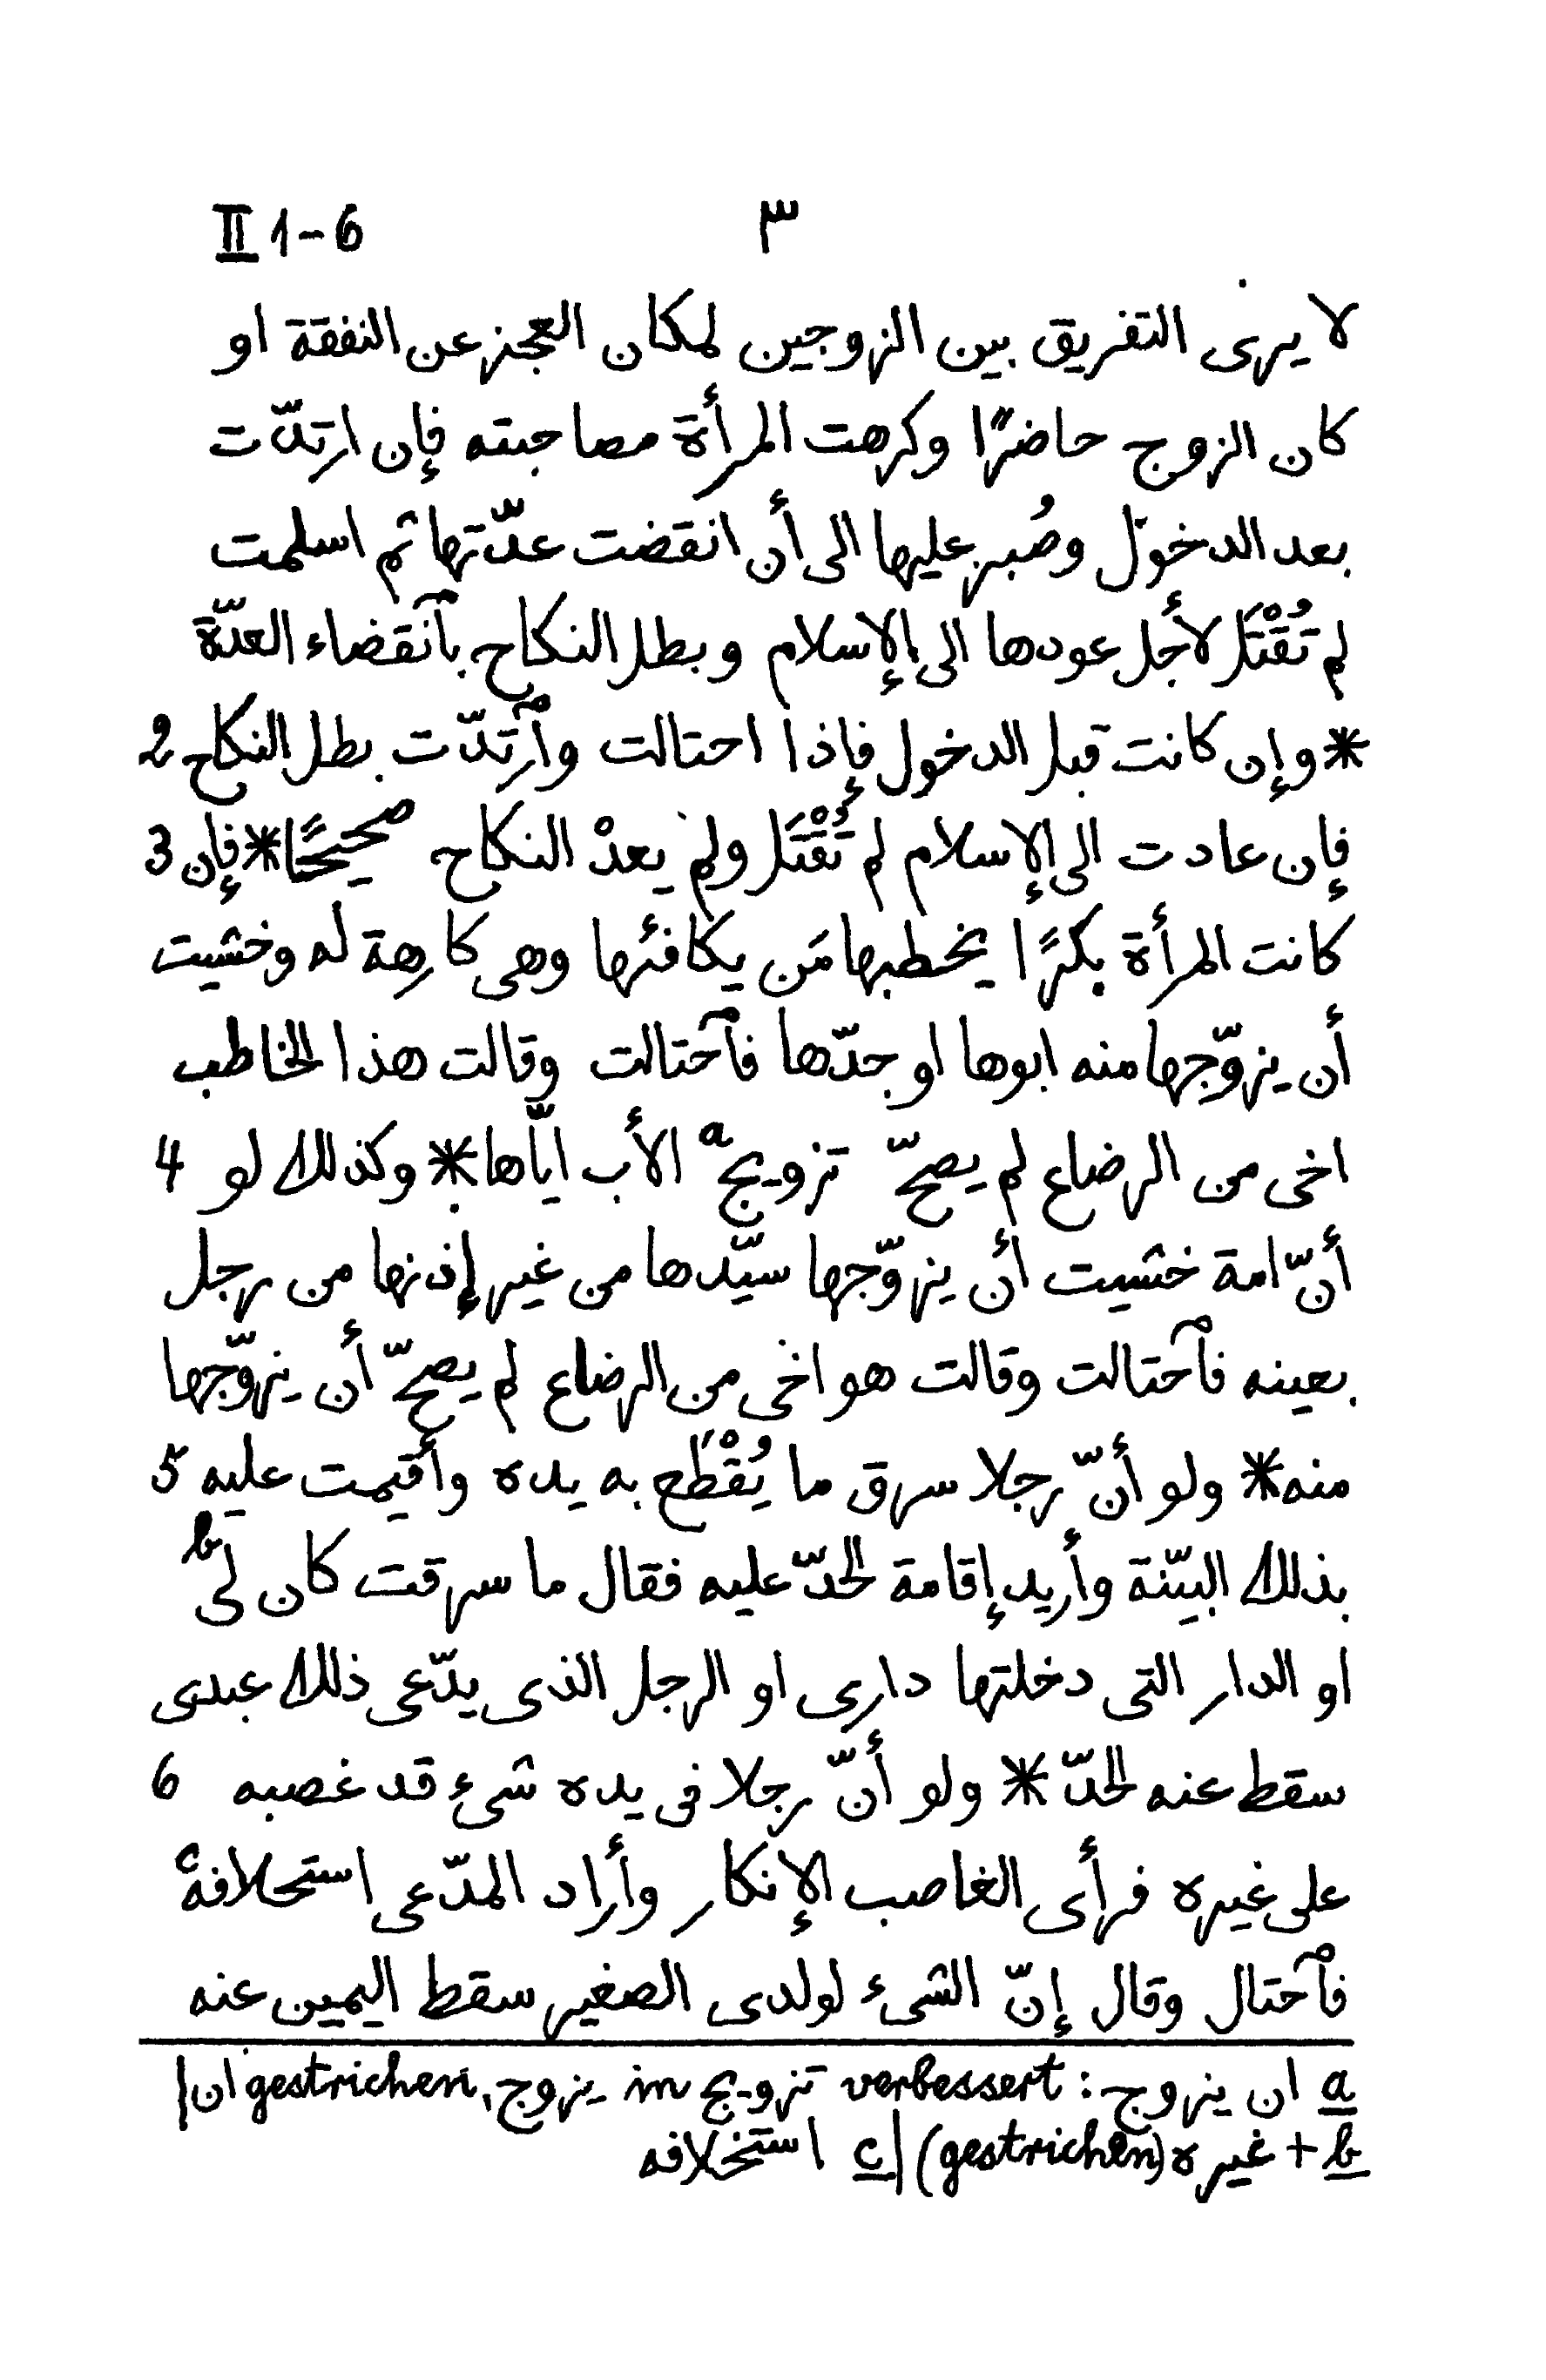 II 1-6 ٣
لا يرى التفريق بين الزوجين لمكان العجز عن النفقة او
كان الزوج حاضرًا وكرهت المرأة مصاحبته فإن ارتدّت
بعد الدخول وصُبر عليها الى أن انقضت عدّتها ثم اسلمت
لم تُقْتَل لأجل عودها الى الإسلام وبطل النكاح بٱنقضاء العدّة
* وإن كانت قبل الدخول فإذا احتالت وٱرتدّت بطل النكاح 2
فإن عادت الى الإسلام لم تُقْتَل ولم يعدْ النكاح صحيحًا * فإن 3
كانت المرأة بكرًا يخطبها مَن يكافئها وهى كارهة له وخشيت
أن يزوّجها منه ابوها او جدّها فٱحتالت وقالت هذا الخاطب
اخى من الرضاع لم يصحّ تزويج a الأب ايّاها * وكذلك لو 4
أنّ امة خشيت أن يزوّجها سيّدها من غير إذنها من رجل
بعينه فٱحتالت وقالت هو اخى من الرضاع لم يصحّ أن يزوّجها
منه * ولو أنّ رجلا سرق ما يُقْطَع به يده وأقيمت عليه 5
بذلك البيّنة وأريد إقامة الحدّ عليه فقال ما سرقت كان لى b
او الدار التى دخلتها دارى او الرجل الذى يدّعى ذلك عبدى
سقط عنه الحدّ * ولو أنّ رجلا فى يده شىء قد غصبه 6
على غيره فرأى الغاصب الإنكار وأراد المدّعى استحلافه c
فٱحتال وقال إنّ الشىء لولدى الصغير سقط اليمين عنه
a ان يزوج : verbessert تزويج in يزوج, gestrichen ان |
b + غيره (gestrichen) | c استخلافه